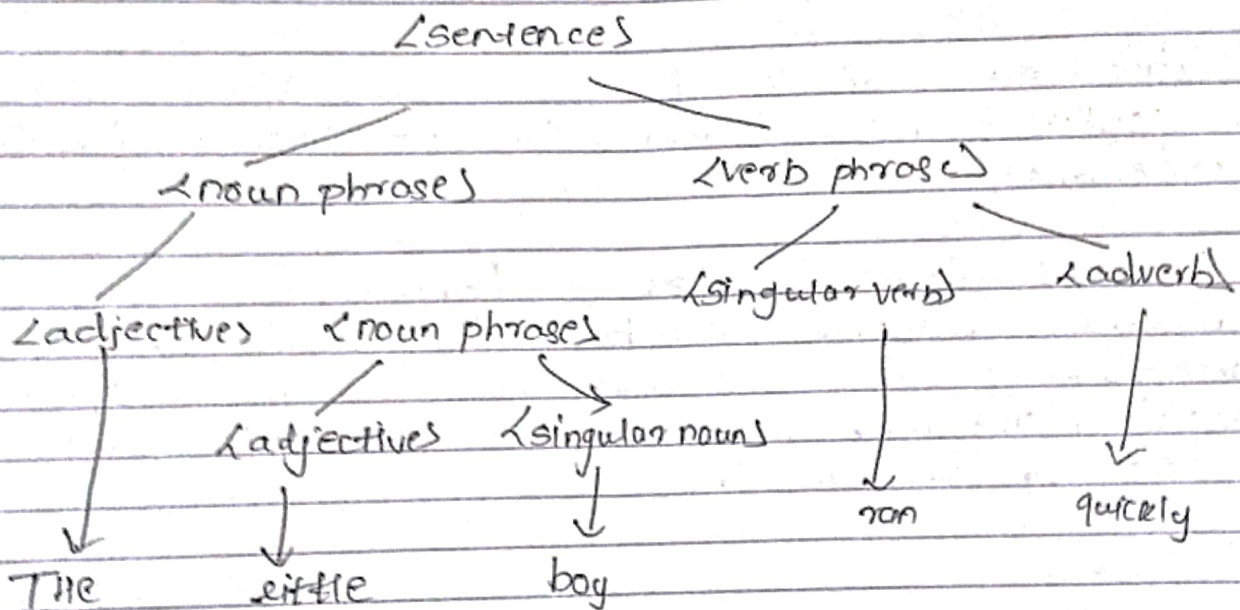 <sentence>
<noun phrase> <verb phrase>
<singular verb> <adverb>
<adjective> <noun phrase>
<adjective> <singular noun>
ran quickly
The little boy